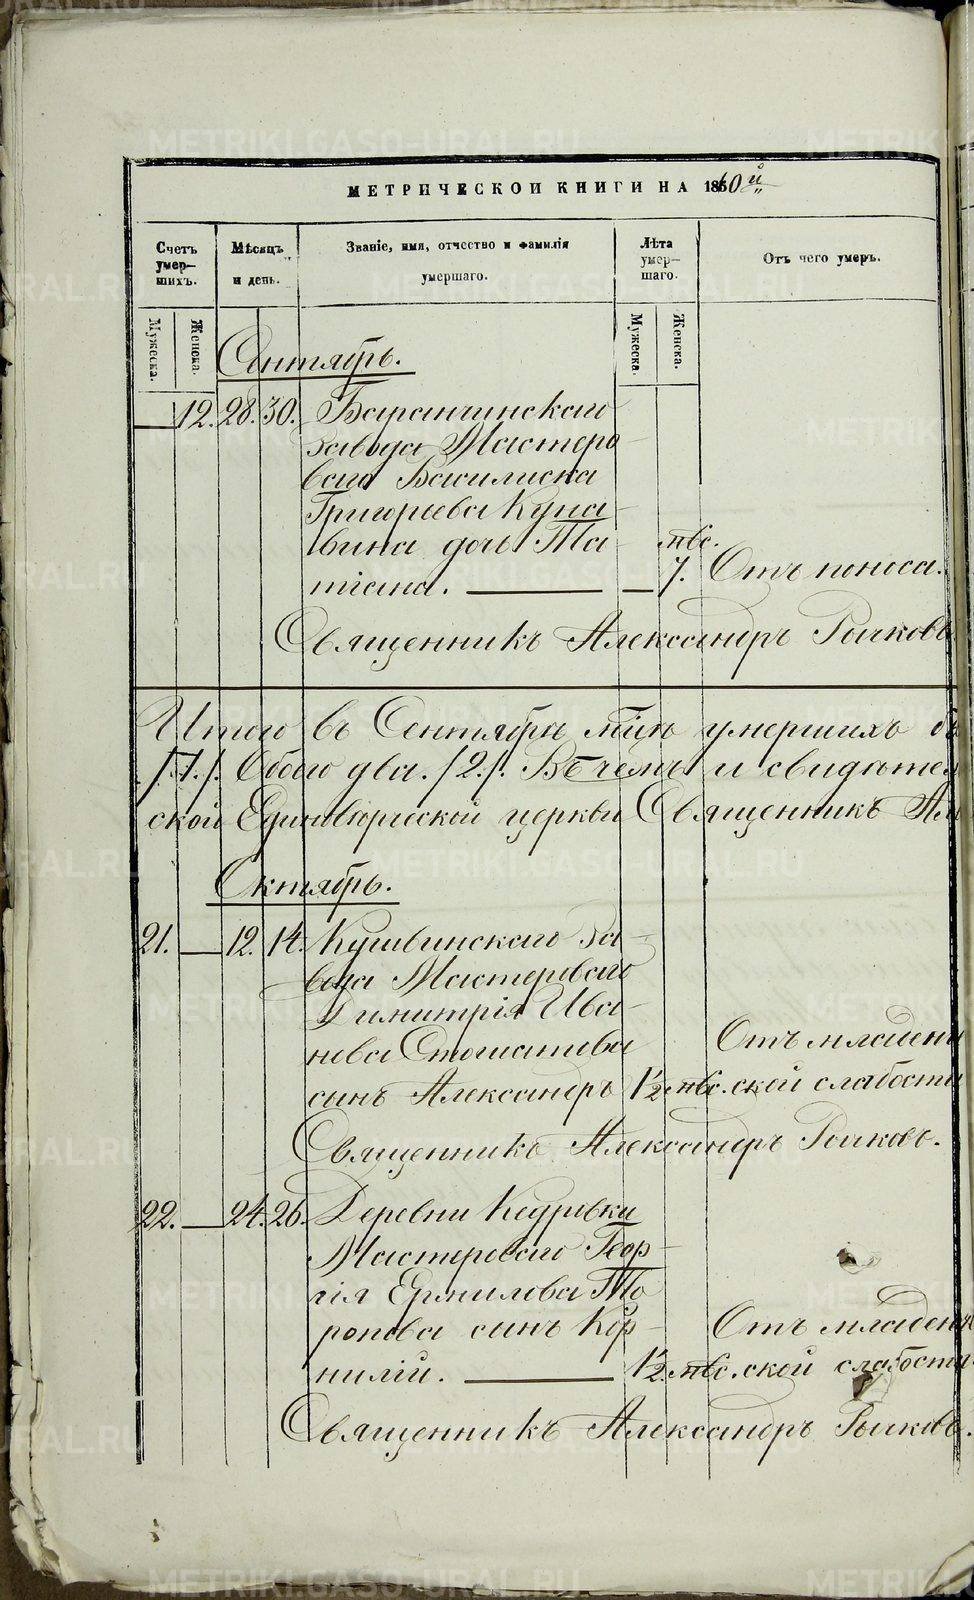 МЕТРИЧЕСКОЙ КНИГИ НА 1860й
Счетъ умер-шихъ.
Мѣсяцъ и день.
Званіе, имя, отчество и фамилія умершаго.
Лѣта умер-шаго.
Отъ чего умеръ.
Мужеска.
Женска.
Мужеска.
Женска.
Сентябрь.
— 12. 28. 30. Баранчинскаго
завода Мастеро
ваго Василиска
Григорьева Купа-
вина дочь Та- мѣс.
тіана. — — 7. Отъ поноса.
Священникъ Александръ Рычковъ
Итого въ Сентябрѣ мѣсяцѣ умершихъ
/1./ Обоего два. /2./. Въ чемъ и свидѣтел
ской Единовѣрческой церкви Священникъ Ал
Октябрь.
21. — 12. 14. Кушвинскаго За-
вода Мастероваго
Димитрія Ива-
нова отъ младен
сынъ Александръ 1/2 мѣс. ской слабости
Священникъ Александръ Рычковъ.
22. — 24. 26. Деревни Кедровки
Мастероваго Геор-
гія Ермилова То
ропова сынъ Кор- Отъ младен
нилій. — 1/2. мѣс. ской слабости
Священникъ Александръ Рычковъ.
METRIKI.GASO-URAL.RU